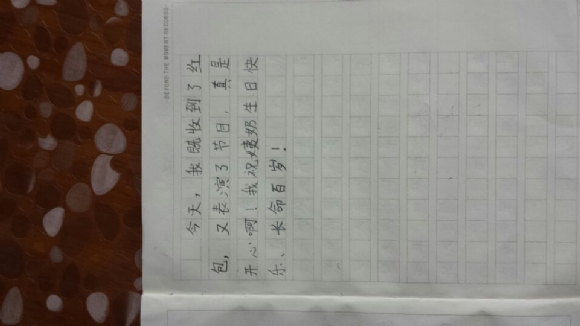 今天，我既收到了红
包，又表演了节目，真是
开心啊！我祝姨奶生日快
乐、长命百岁！